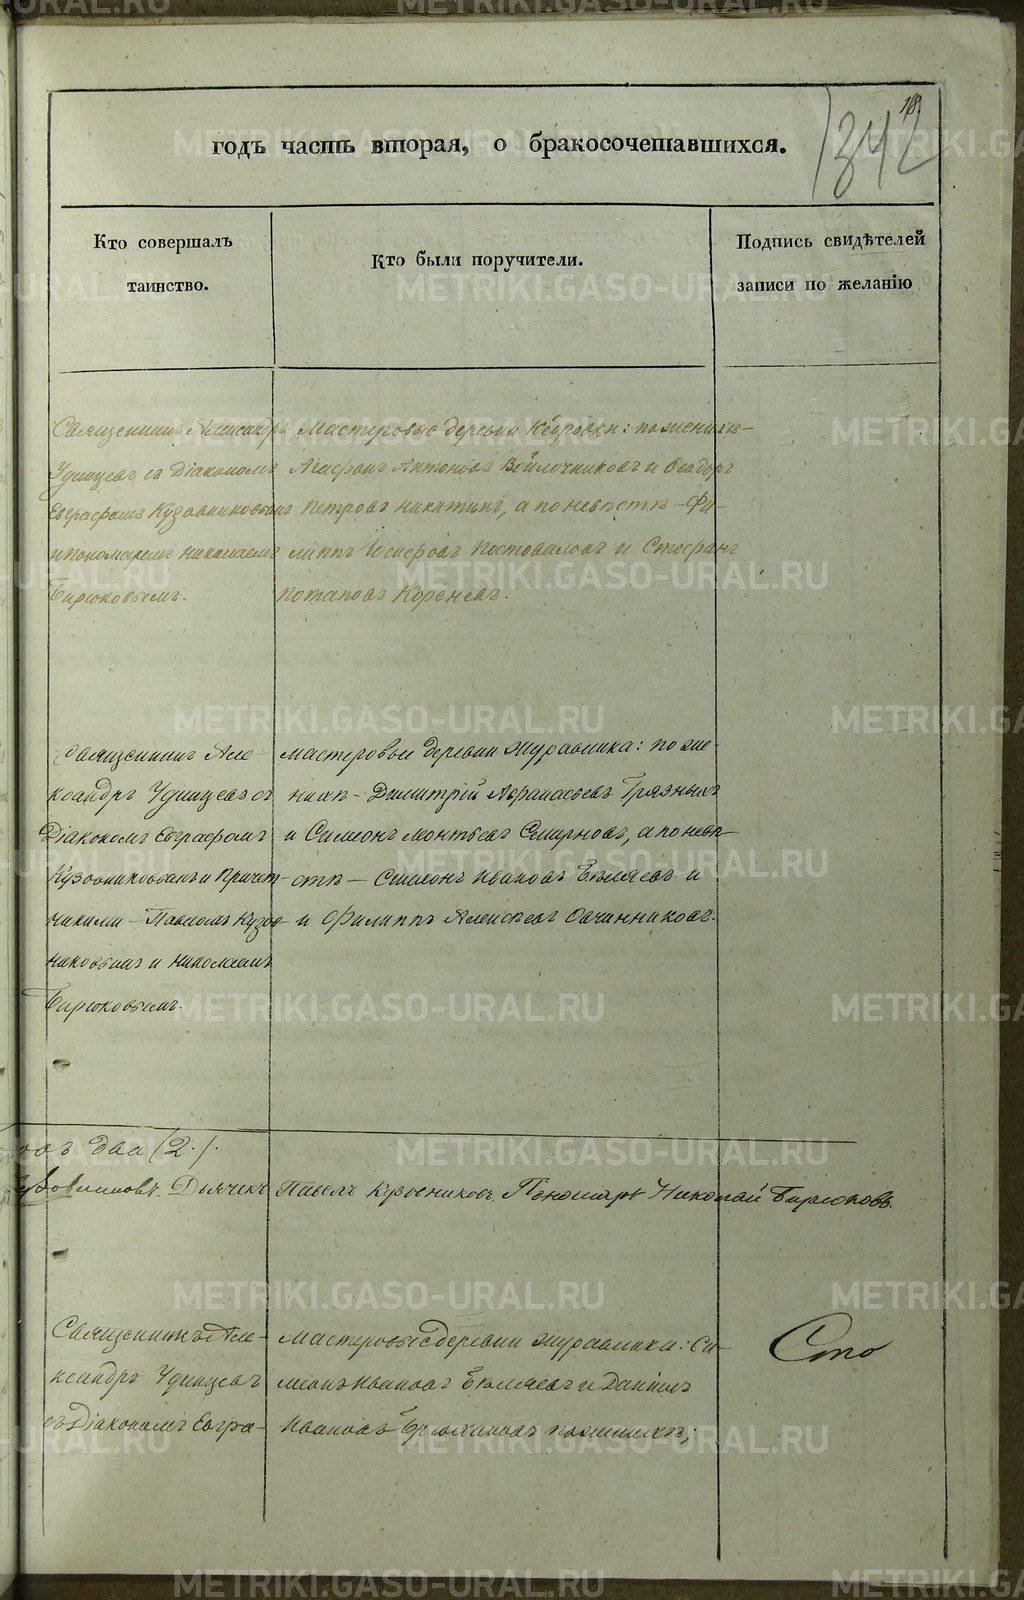 18.
1342
годъ часть вторая, о бракосочетавшихся.
Кто совершалъ
таинство.
Кто были поручители.
Подпись свидѣтелей
записи по желанію
Священникъ Александръ
Удинцевъ съ Діакономъ
Евграфомъ Кузовниковымъ
и пономаремъ Николаемъ
Бирюковымъ.
Мастеровые деревни Кедровки: по женихѣ
Агафонъ Антоновъ Войлочниковъ и Ѳеодоръ
Петровъ Никитинъ, а по невѣстѣ - Фи-
липпъ Іосифовъ Постоваловъ и Стефанъ
Потаповъ Кореневъ.
Священникъ Але-
ксандръ Удинцевъ съ
Діакономъ Евграфомъ
Кузовниковымъ и Причет-
никами - Павломъ Кузов-
никовымъ и Николаемъ
Бирюковымъ.
Мастеровые деревни Журавлика: по же-
нихѣ - Димитрій Аѳанасьевъ Грязныхъ
и Симеонъ Смирновъ, а по невѣ-
стѣ - Симеонъ Ивановъ Бѣляевъ и
и Филиппъ Алексѣевъ Овчинниковъ.
два (2.).
Дьячекъ Павелъ Кузовниковъ. Пономарь Николай Бирюковъ.
Священникъ Але-
ксандръ Удинцевъ
съ Діакономъ Евгра-
Мастеровые деревни Журавлика: Си-
меонъ Ивановъ Бѣляевъ и Даніилъ
Ивановъ Брюхановъ по женихѣ;
METRIKI.GASO-URAL.RU